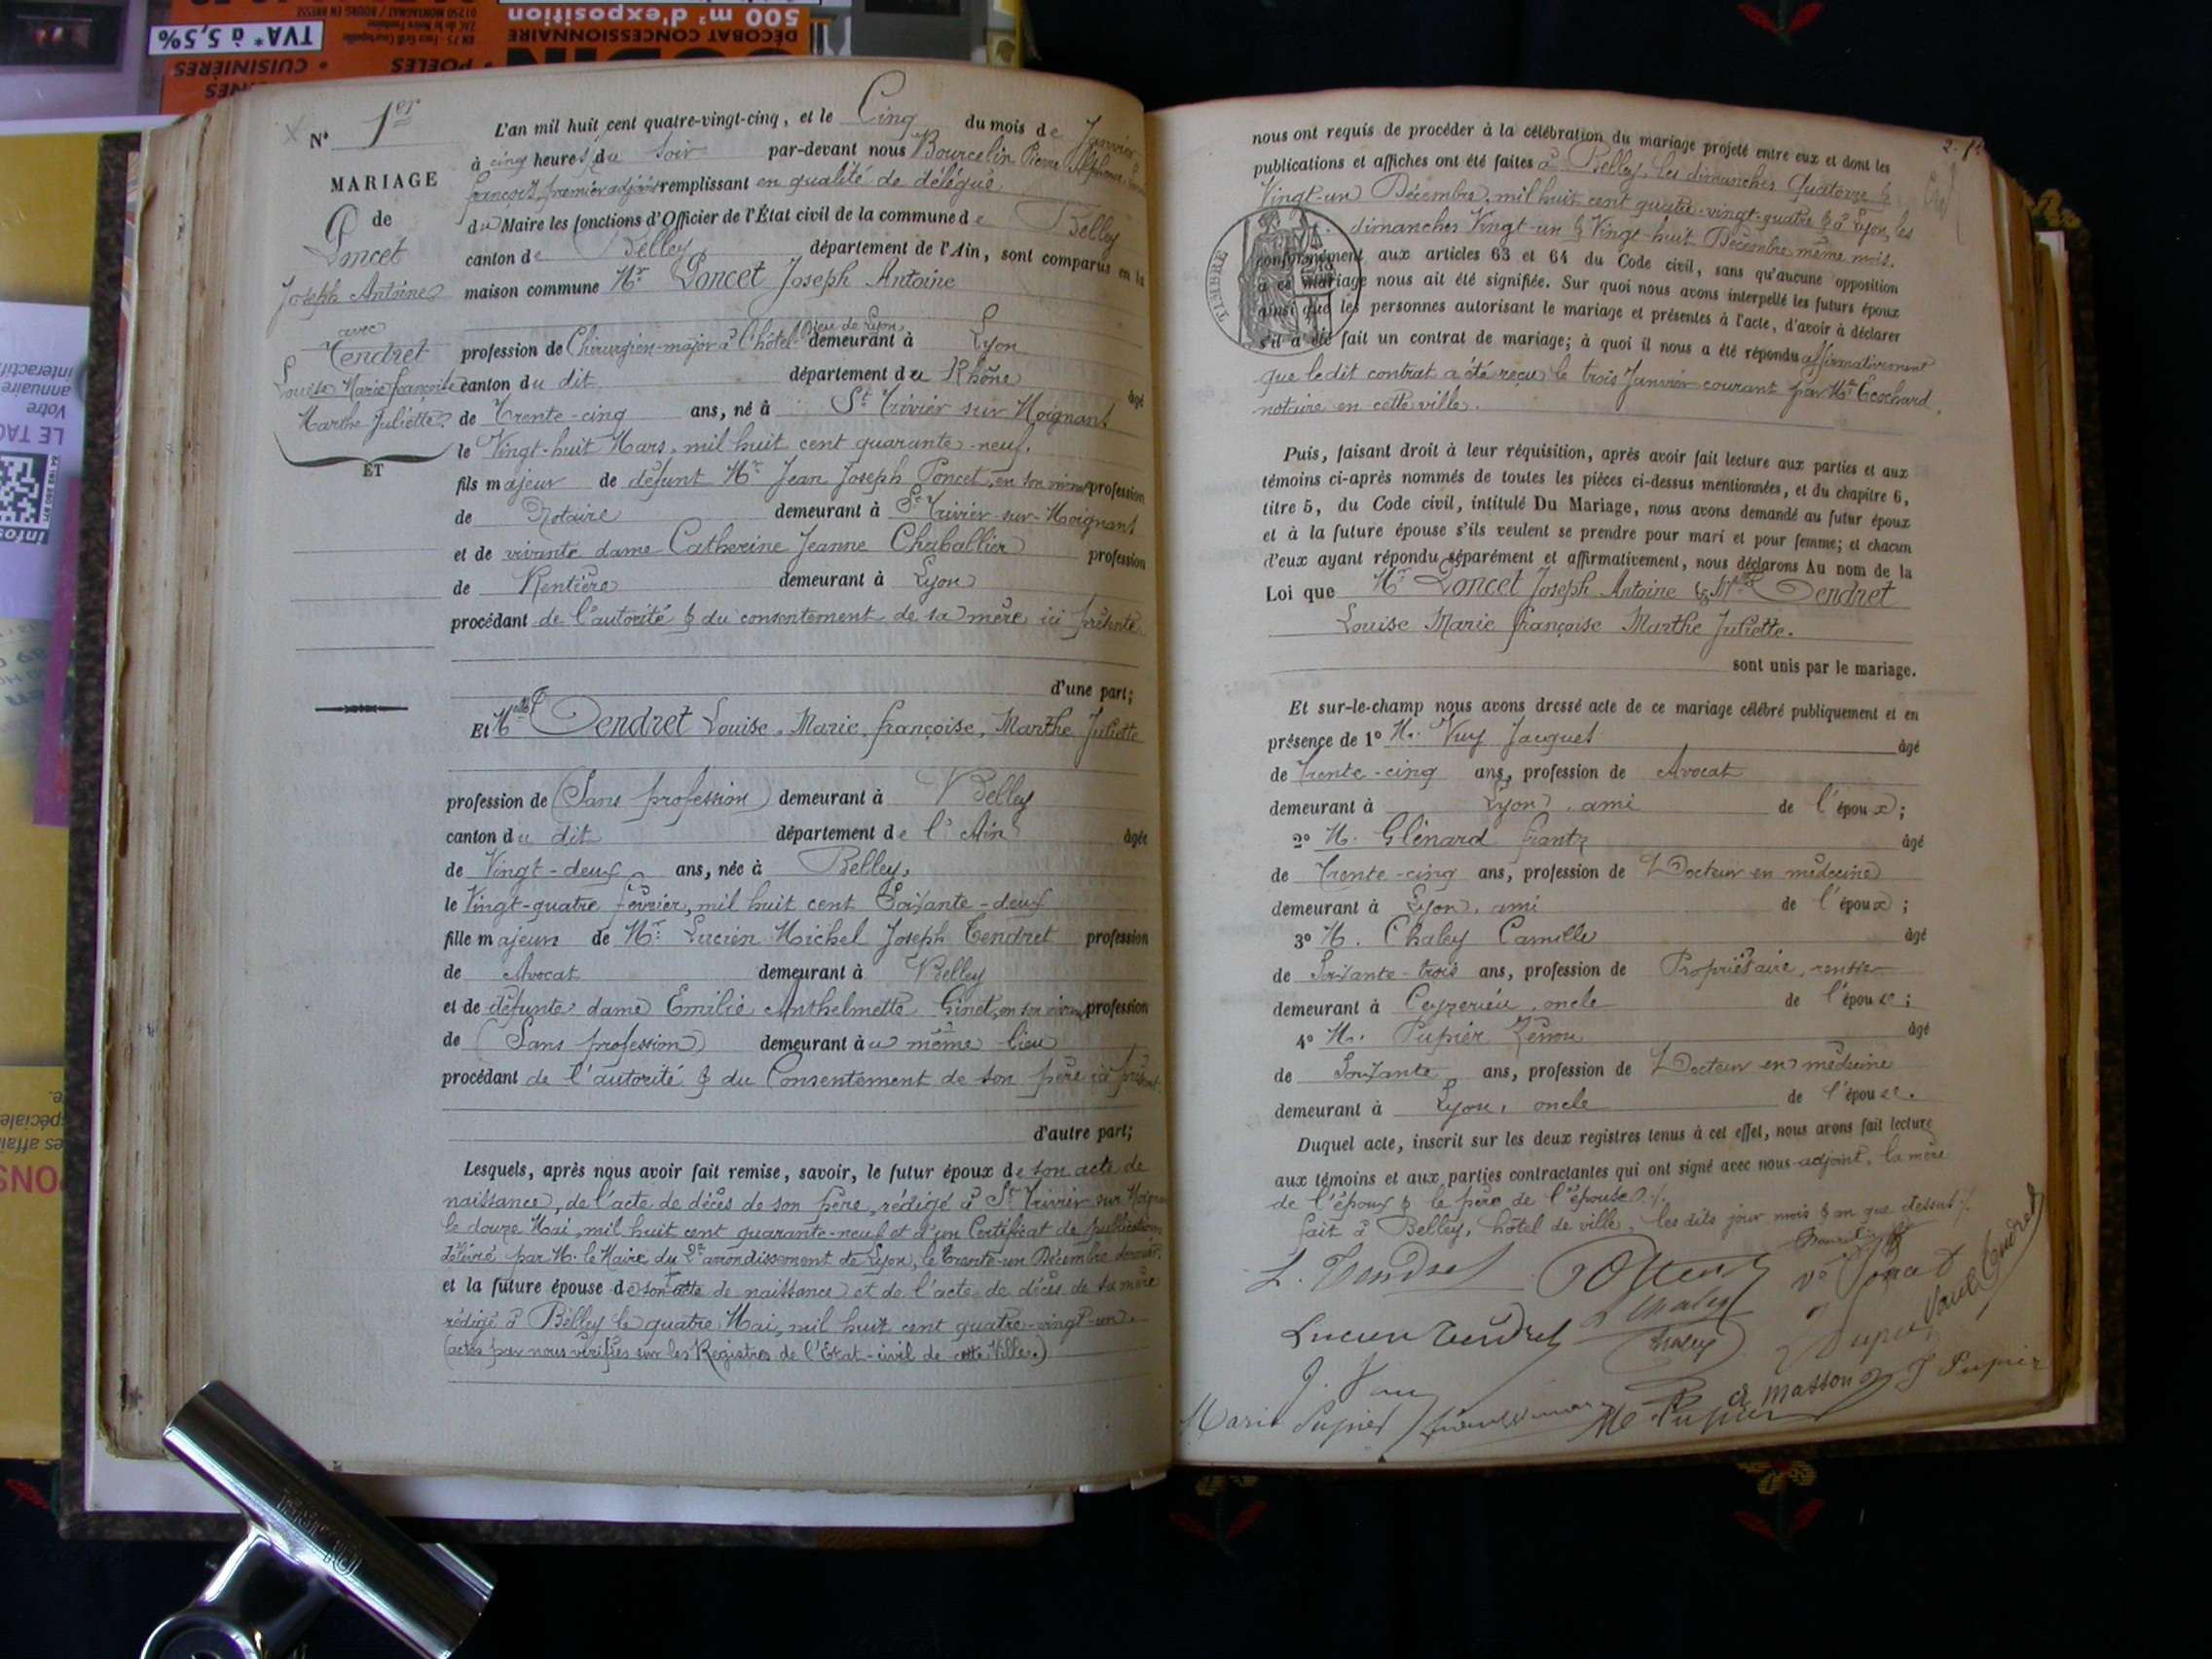 TVA* à 5,5%
500 m² d'exposition
DÉCOBAT CONCESSIONNAIRE
• CUISINIÈRES
POELES •
N° 1er
MARIAGE
de
Poncet
Joseph Antoine
avec
Tendret
Louise Marie françoise
Marthe Juliette
ET
L'an mil huit cent quatre-vingt-cinq, et le Cinq du mois de Janvier
à cinq heures du Soir par-devant nous Bourcelin Pierre Alphonse
françois, premier adjoint remplissant en qualité de délégué
du Maire les fonctions d'Officier de l'État civil de la commune de Belley
canton de Belley département de l'Ain, sont comparus en la
maison commune Mr Poncet Joseph Antoine
profession de Chirurgien-major à l'hôtel-Dieu de Lyon demeurant à Lyon
canton du dit département du Rhône âgé
de Trente-cinq ans, né à St Trivier sur Moignant
le Vingt-huit Mars, mil huit cent quarante-neuf.
fils majeur de défunt Mr Jean Joseph Poncet, en son vivant profession
de Notaire demeurant à St Trivier-sur-Moignant
et de vivante dame Catherine Jeanne Chaballier profession
de Rentière demeurant à Lyon
procédant de l'autorité & du consentement de sa mère ici présente
d'une part;
Et Melle Tendret Louise, Marie, françoise, Marthe Juliette
profession de (Sans profession) demeurant à Belley
canton du dit département de l'Ain âgée
de Vingt-deux ans, née à Belley,
le Vingt-quatre février, mil huit cent Soixante-deux
fille majeure de Mr Lucien Michel Joseph Tendret profession
de Avocat demeurant à Belley
et de défunte dame Emilie Anthelmette Ginet, en son vivant profession
de (Sans profession) demeurant au même lieu
procédant de l'autorité & du Consentement de son père ici présent
d'autre part;
Lesquels, après nous avoir fait remise, savoir, le futur époux de son acte de
naissance, de l'acte de décès de son père, rédigé à St Trivier sur Moignant
le douze Mai, mil huit cent quarante-neuf et d'un Certificat de publications
délivré par M. le Maire du 2e arrondissement de Lyon, le Trente-un Décembre dernier.
et la future épouse de son acte de naissance et de l'acte de décès de sa mère
rédigé à Belley le quatre Mai, mil huit cent quatre-vingt-un.
(actes par nous vérifiés sur les Registres de l'Etat-civil de cette Ville.)
nous ont requis de procéder à la célébration du mariage projeté entre eux et dont les
publications et affiches ont été faites à Belley, les dimanches Quatorze &
Vingt-un Décembre, mil huit cent quatre-vingt-quatre & à Lyon, les
dimanches Vingt-un & Vingt-huit Décembre même mois.
conformément aux articles 63 et 64 du Code civil, sans qu'aucune opposition
à ce mariage nous ait été signifiée. Sur quoi nous avons interpellé les futurs époux
ainsi que les personnes autorisant le mariage et présentes à l'acte, d'avoir à déclarer
s'il a été fait un contrat de mariage; à quoi il nous a été répondu affirmativement
que ledit contrat a été reçu le trois Janvier courant par Me Cochard
notaire en cette ville.
TIMBRE
Puis, faisant droit à leur réquisition, après avoir fait lecture aux parties et aux
témoins ci-après nommés de toutes les pièces ci-dessus mentionnées, et du chapitre 6,
titre 5, du Code civil, intitulé Du Mariage, nous avons demandé au futur époux
et à la future épouse s'ils veulent se prendre pour mari et pour femme; et chacun
d'eux ayant répondu séparément et affirmativement, nous déclarons Au nom de la
Loi que Mr Poncet Joseph Antoine & Melle Tendret
Louise Marie françoise Marthe Juliette.
sont unis par le mariage.
Et sur-le-champ nous avons dressé acte de ce mariage célébré publiquement et en
présence de 1° M. Vuy Jacques âgé
de Trente-cinq ans, profession de Avocat
demeurant à Lyon, ami de l'époux;
2° M. Glénard frantz âgé
de Trente-cinq ans, profession de Docteur en médecine
demeurant à Lyon, ami de l'époux;
3° M. Chaley Camille âgé
de Soixante-trois ans, profession de Propriétaire, rentier
demeurant à Ceyzerieu, oncle de l'épouse;
4° M. Pupier Zénon âgé
de Soixante ans, profession de Docteur en médecine
demeurant à Lyon, oncle de l'épouse.
Duquel acte, inscrit sur les deux registres tenus à cet effet, nous avons fait lecture
aux témoins et aux parties contractantes qui ont signé avec nous adjoint, la mère
de l'époux & le père de l'épouse./.
fait à Belley, hôtel de ville, les dits jour mois & an que dessus./.
L. Tendret
Lucien Tendret
Chaley
J. Vuy
Marie Pupier
M Pupier
Masson
J Pupier